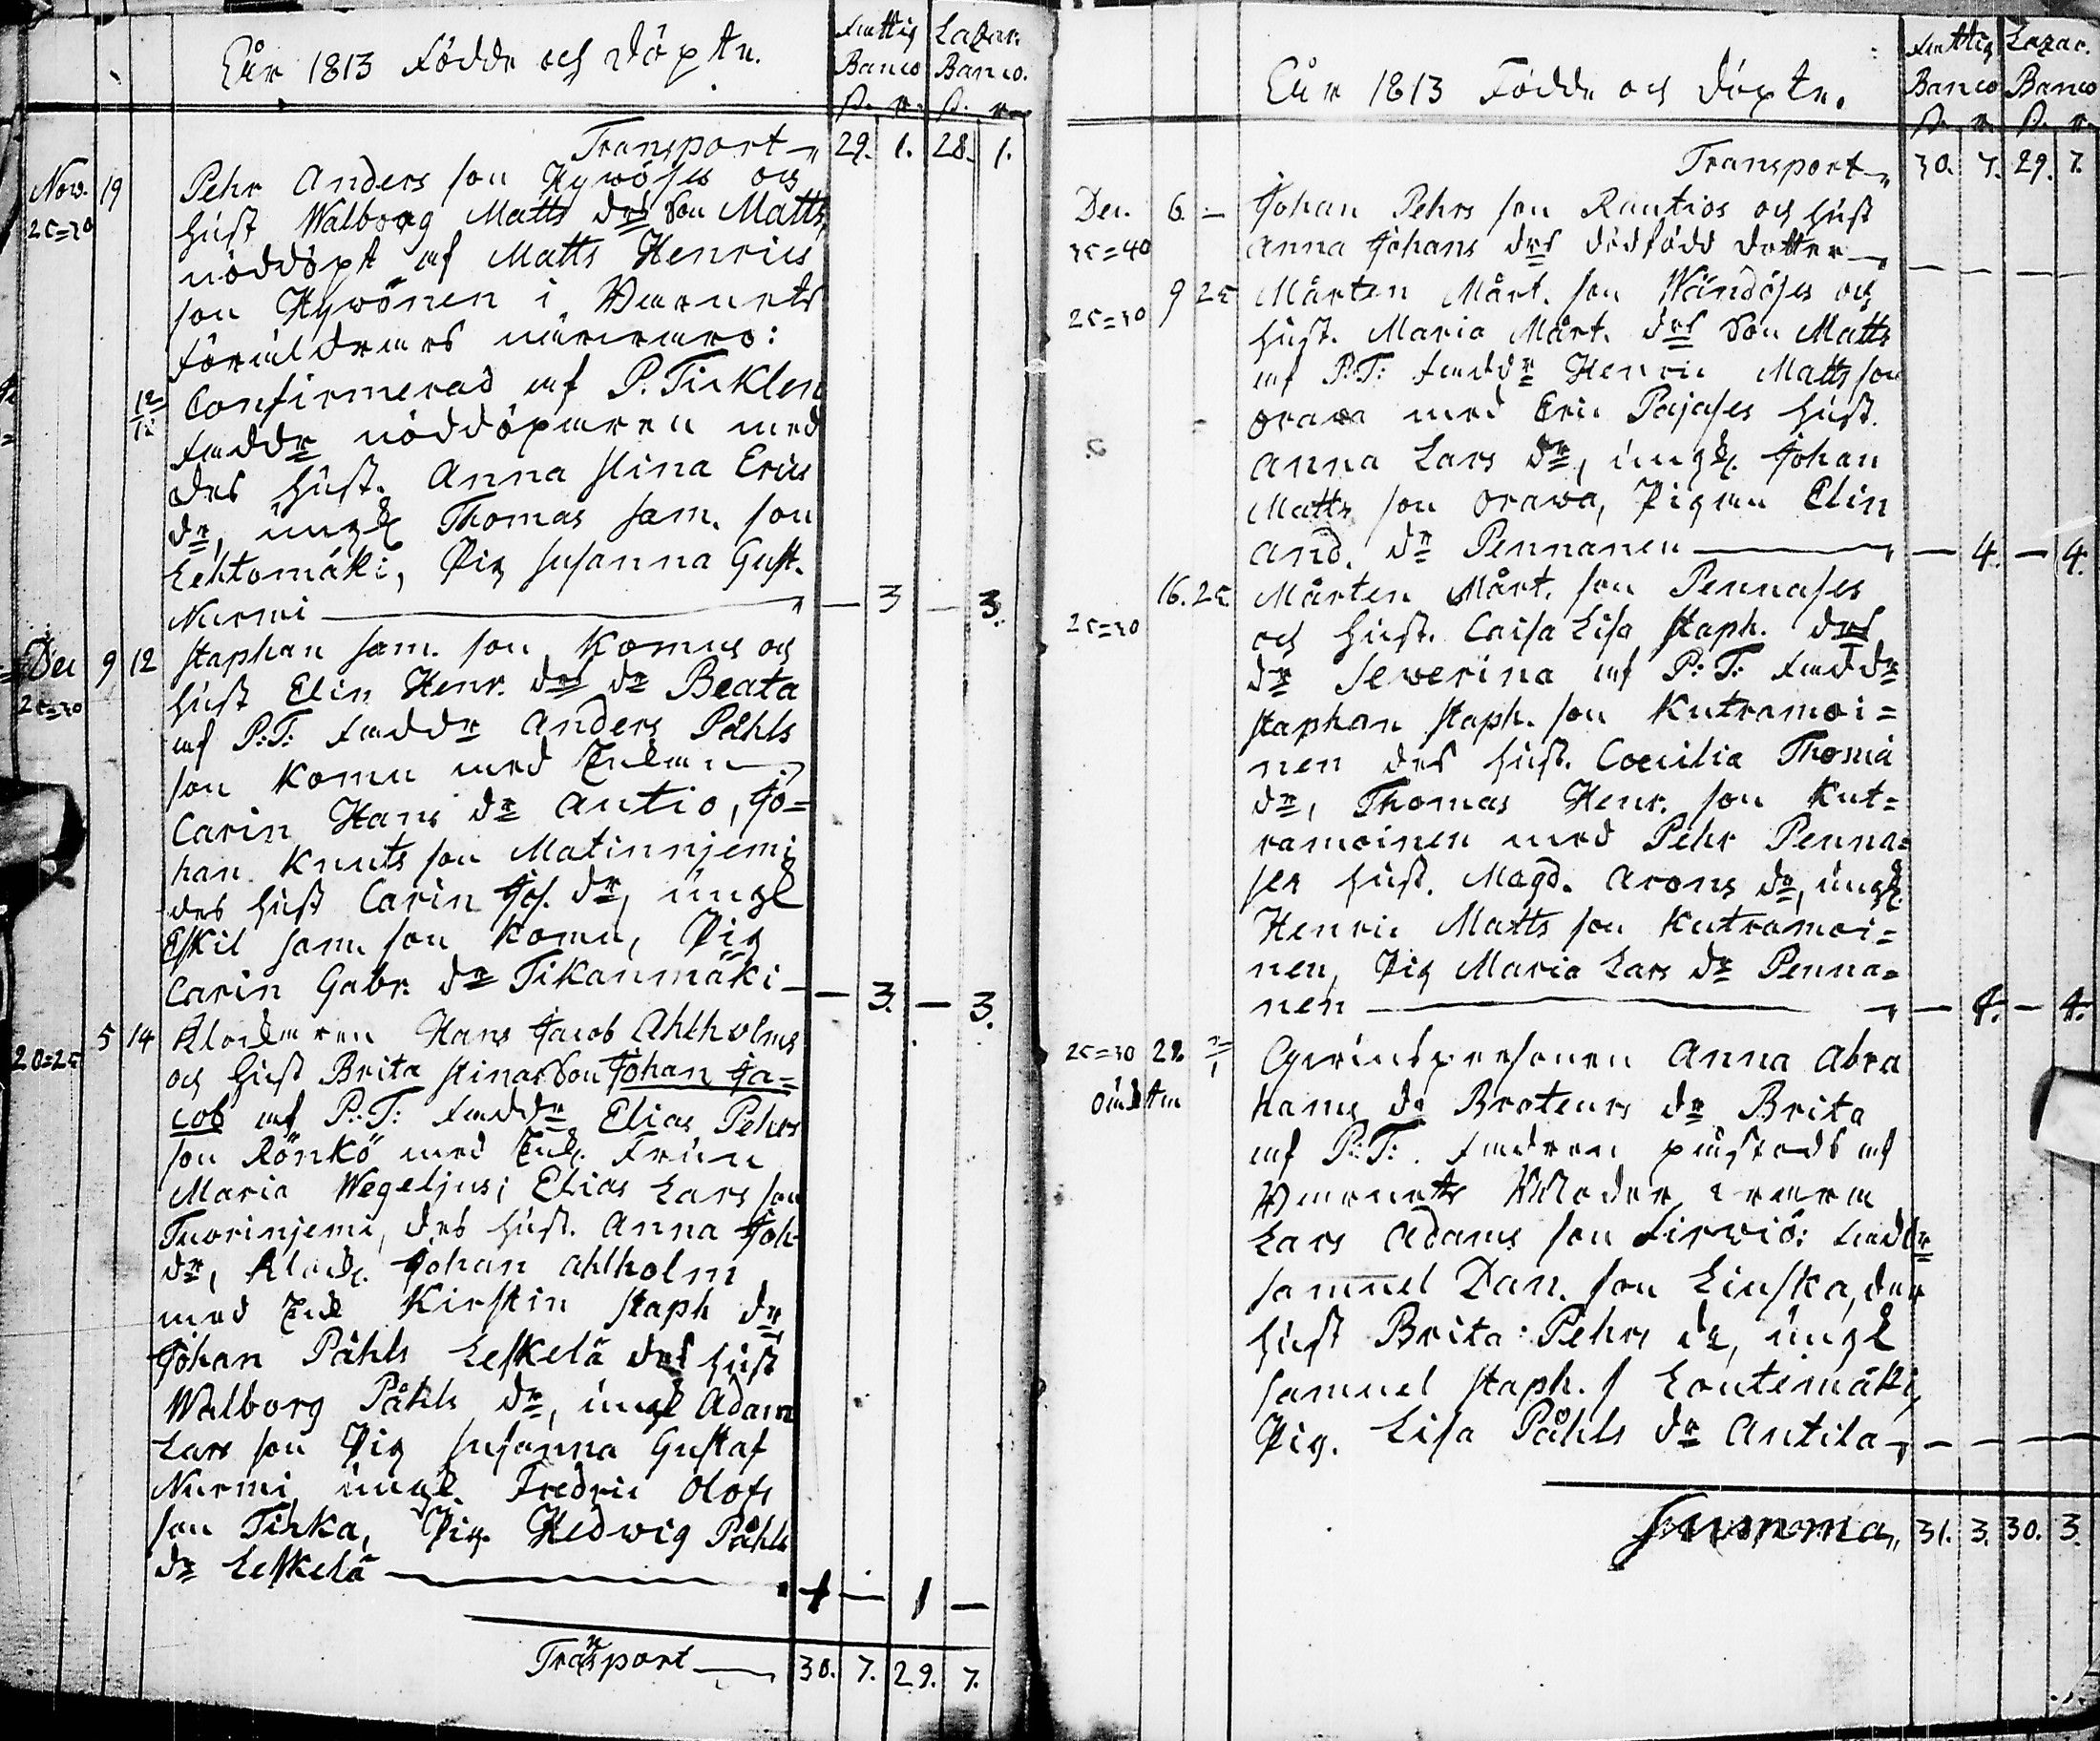 År 1813 Födde och Döpte.
Fattig Banco ß. r. Lazar. Banco. ß. r.
Transport 29. 1. 28. 1.
Nov. 19 Pehr Anders son Hywöses och
25=30 hust Walborg Matts drs Son Matts,
nöddöpt af Matts Henrics
son Hywönen i Barnets
Föräldrars närvaro:
12/12 Confirmerad af P. Ticklen
Faddr nöddöparen med
des hust. Anna Stina Erics
dr, ungk Thomas Sam. son
Lehtomäki, Pig Susanna Gust.
Nurmi — 3 — 3.
Dec 9 12 Staphan Sam. son Komus och
25=30 hust Elin Henr. drs dr Beata
af P:T: Faddr Anders Påhls
son Komu med Enkan
Carin Hans dr Antio, Jo=
han Knuts son Matinnjemi
des hust Carin Joh. dr, ungk
Eskil Sam son Komu, Pig
Carin Gabr. dr Tikanmäki — 3. — 3.
5 14 Klockaren Hans Jacob Ahlholms
20=25 och hust Brita Stinas Son Johan Ja=
cob af P:T: Faddr Elias Pehrs
son Rönkö med Enk. Frun
Maria Wegeljus; Elias Lars son
Tuorinjemi, des hust. Anna Joh
dr, Klock. Johan Ahlholm
med Enk Kirstin Staph dr
Johan Påhls Leskelä des hust
Walborg Påhls dr, ungk Adam
Lars son Pig Susanna Gustaf
Nurmi, ungk. Fredric Olofs
son Tirka, Pig. Hedwig Påhls
dr Leskelä — 1 — 1 —
Transport — 30. 7. 29. 7.
År 1813 Födde och Döpte.
Fattig Banco ß. r. Lazar. Banco ß. r.
Transport 30. 7. 29. 7.
Dec. 6. — Johan Pehrs son Rautios och hust
35=40 Anna Johans drs dödfödd dotter — — — —
9 25 Mårten Mårt. son Wändöses och
25=30 hust. Maria Mårt. drs Son Matts
af P:T: Faddr Henric Matts son
Orawa med Eric Pajases hust.
Anna Lars dr, ungk. Johan
Matts son Orawa, Pigan Elin
And. dr Pennanen — 4. — 4.
16. 25 Mårten Mårt. son Pennases
25=30 och hust. Caisa Lisa Staph. drs
dr Severina af P:T: Faddr
Staphan Staph. son Kutramoi=
nen des hust. Coecilia Thomä
dr, Thomas Henr. son Kut=
ramoinen med Pehr Penna=
ses hust. Magd. Arons dr, ungk.
Henric Matts son Kutramoi=
nen, Pig Maria Lars dr Penna=
nen — 4. — 4.
25=30 28 2/1 Qvinspersonen Anna Abra
hams dr Broteurs dr Brita
af P:T:. Fadren påstods af
Barnets Moder vara
Lars Adams son Firwiö: Faddr
Samuel Dan. son Liuska, des
hust Brita Pehrs dr, ungk
Samuel Staph. s Loutimäki,
Pig. Lisa Påhls dr Antila — — — —
Summa, 31. 3. 30. 3.